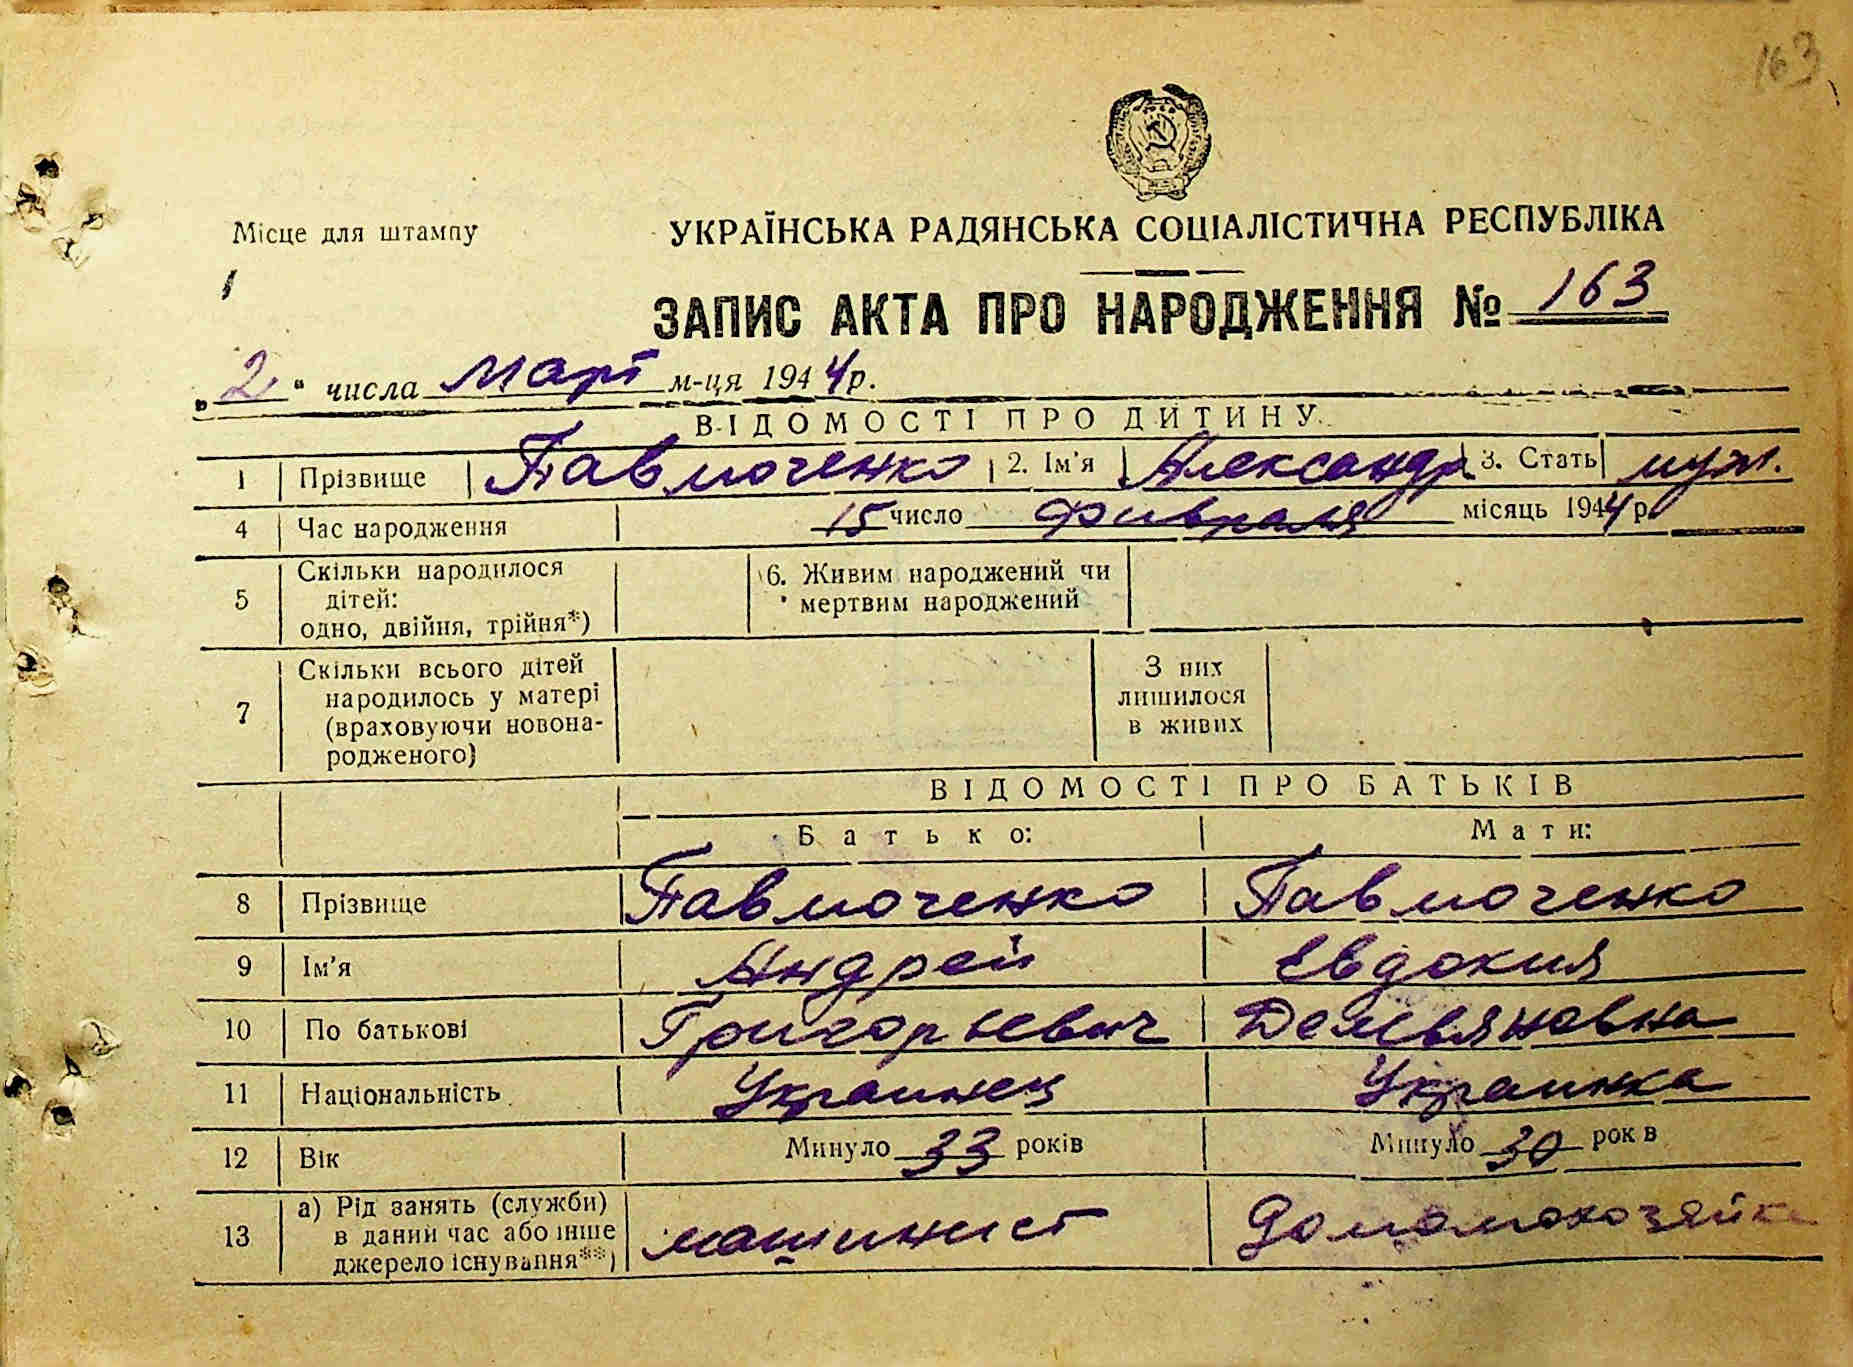 163
Місце для штампу
УКРАЇНСЬКА РАДЯНСЬКА СОЦІАЛІСТИЧНА РЕСПУБЛІКА
ЗАПИС АКТА ПРО НАРОДЖЕННЯ № 163
„2" числа Март м-ця 1944р.
ВІДОМОСТІ ПРО ДИТИНУ
1 Прізвище Павлюченко 2. Ім'я Александр 3. Стать муж.
4 Час народження 15 число Фивраля місяць 1944 р.
5 Скільки народилося дітей: одно, двійня, трійня*) 6. Живим народжений чи мертвим народжений
7 Скільки всього дітей народилось у матері (враховуючи новона-родженого) З них лишилося в живих
ВІДОМОСТІ ПРО БАТЬКІВ
Батько: Мати:
8 Прізвище Павлюченко Павлюченко
9 Ім'я Андрей Евдокия
10 По батькові Григорьевич Демьяновна
11 Національність Украинец Украинка
12 Вік Минуло 33 років Минуло 30 років
13 а) Рід занять (служби) в даний час або інше джерело існування**) машинист домомохозяйка